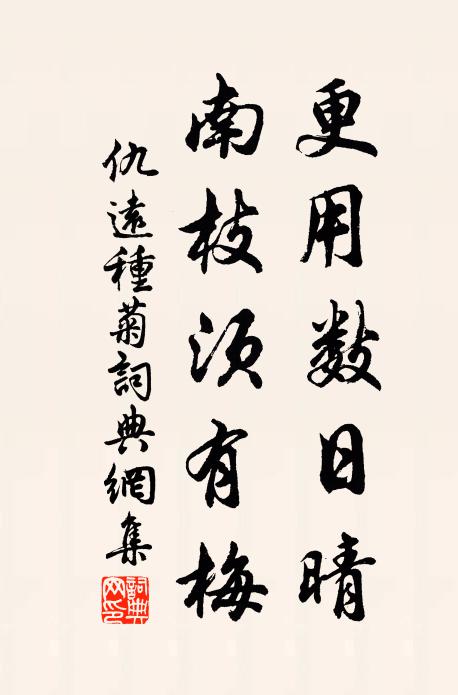 更用数日晴
南枝须有梅
仇遠種菊詞典網集
詞典網印